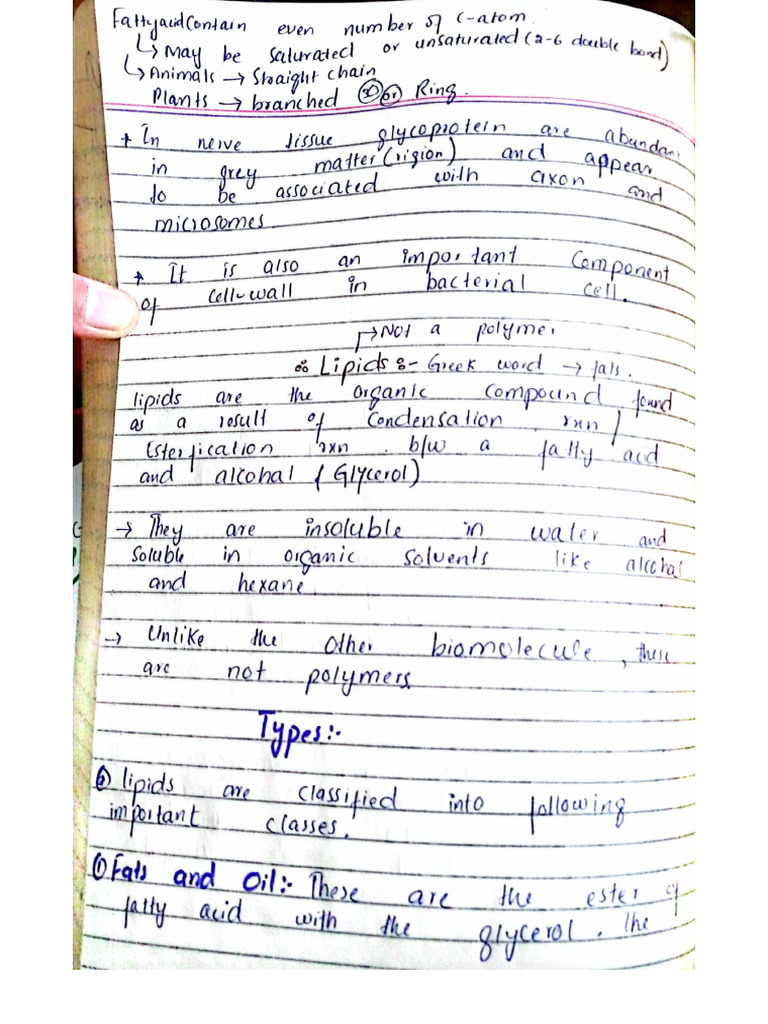 Fatty acid Contain even number of C-atom.
↳ May be saturated or unsaturated (2-6 double bond)
↳ Animals → Straight chain
Plants → branched or Ring.
* In nerve tissue glycoprotein are abundan
in grey matter (rigion) and appear
to be associated with axon and
microsomes.
* It is also an important Component
of cell-wall in bacterial cell.
→ Not a polymer
Lipids :- Greek word → fats.
lipids are the organic compound found
as a result of Condensation rxn /
Esterfication rxn. b/w a fatty acid
and alcohal (Glycerol)
→ They are insoluble in water and
Soluble in organic solvents like alcohal
and hexane
→ Unlike the other biomolecule, these
are not polymers
Types:-
lipids are classified into following
important classes.
① Fats and Oil:- These are the ester of
fatty acid with the glycerol. The